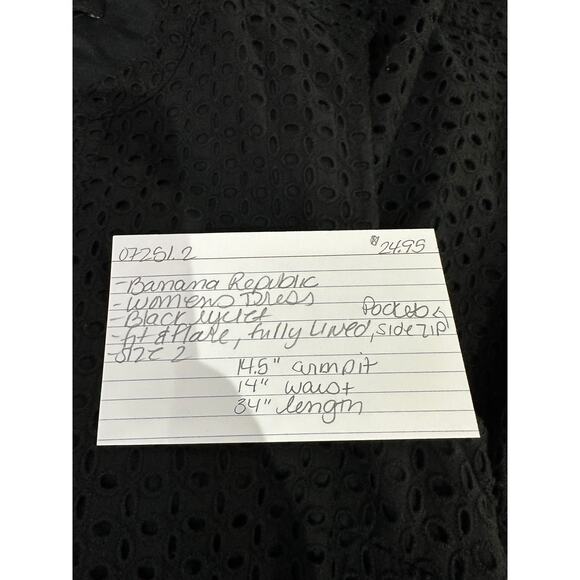 07251.2 $24.95
-Banana Republic
-womens Dress
-Black eyelet Pockets
-fit & flare, fully lined, side zip
-Size 2
14.5" armpit
14" waist
34" length